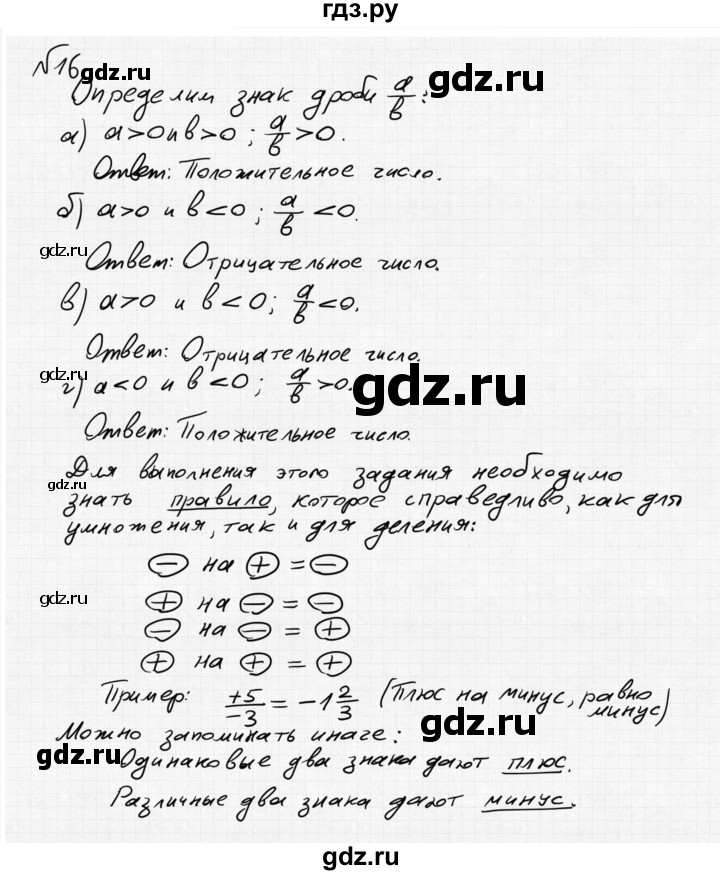 гдз.ру
№16
gdz.ru
Определим знак дроби a/b:
а) a>0 и b>0; a/b>0.
Ответ: Положительное число.
б) a>0 и b<0; a/b<0.
gdz.ru
Ответ: Отрицательное число.
в) a>0 и b<0; a/b<0.
Ответ: Отрицательное число.
gdz.ru
г) a<0 и b<0; a/b>0.
gdz.ru
Ответ: Положительное число.
Для выполнения этого задания необходимо
gdz.ru
знать правило, которое справедливо, как для
умножения, так и для деления:
⊖ на ⊕ = ⊖
gdz.ru
⊕ на ⊖ = ⊖
⊖ на ⊖ = ⊕
⊕ на ⊕ = ⊕
Пример: +5/-3 = -1 2/3 (Плюс на минус, равно
минус)
gdz.ru
Можно запоминать иначе:
gdz.ru
Одинаковые два знака дают плюс.
Различные два знака дают минус.
gdz.ru